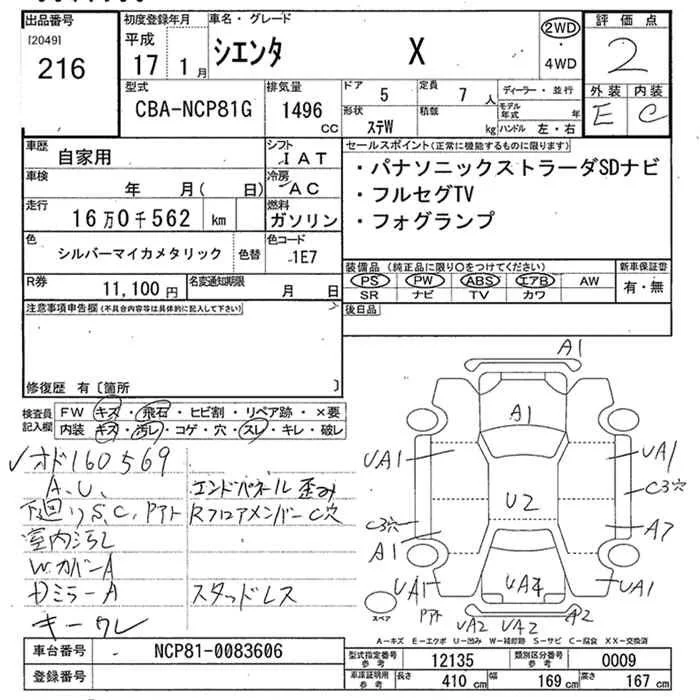 出品番号
[2049]
216
初度登録年月
平成
17 1月
車名・グレード
シエンタ X
2WD
・
4WD
評価点
2
外装 内装
E C
型式
CBA-NCP81G
排気量
1496
CC
ドア 5
定員 7人
形状 ステW
積載 kg
ディーラー・並行
モデル年式 年
ハンドル 左・右
車歴
自家用
シフト
I AT
車検
年 月( 日)
冷房
AC
走行
16万0千562 km
燃料
ガソリン
色
シルバーマイカメタリック
色替
色コード
1E7
R券
11,100円
名変通知期限
月 日
セールスポイント(正常に機能するものに限ります)
・パナソニックストラーダSDナビ
・フルセグTV
・フォグランプ
装備品(純正品に限り○をつけてください)
PS PW ABS エアB AW
SR ナビ TV カワ
新車保証書
有・無
後日品
注意事項申告欄(不具合内容等は具体的に記入して下さい)
修復歴 有〔箇所 〕
検査員
記入欄
FW キズ・飛石・ヒビ割・リペア跡・×要
内装 キズ・汚レ・コゲ・穴・スレ・キレ・破レ
✓オド160569
A、U、
エンドパネル歪み
下廻りS、C、Pアト
RフロアメンバーC穴
室内汚レ
WカバーA
DミラーA
スタッドレス
キーワレ
A1
A1
UA1
UA1
C3穴
U2
C3穴
A1
A7
UA1
UA4
UA1
Pアト
UA2
UA2
A2
スペア
A-キズ E-エクボ U-凹み W-補修跡 S-サビ C-腐食 XX-交換済
車台番号
NCP81-0083606
登録番号
型式指定番号
参考
12135
類別区分番号
参考
0009
車庫証明用
参考
長さ 410 cm
幅 169 cm
高さ 167 cm